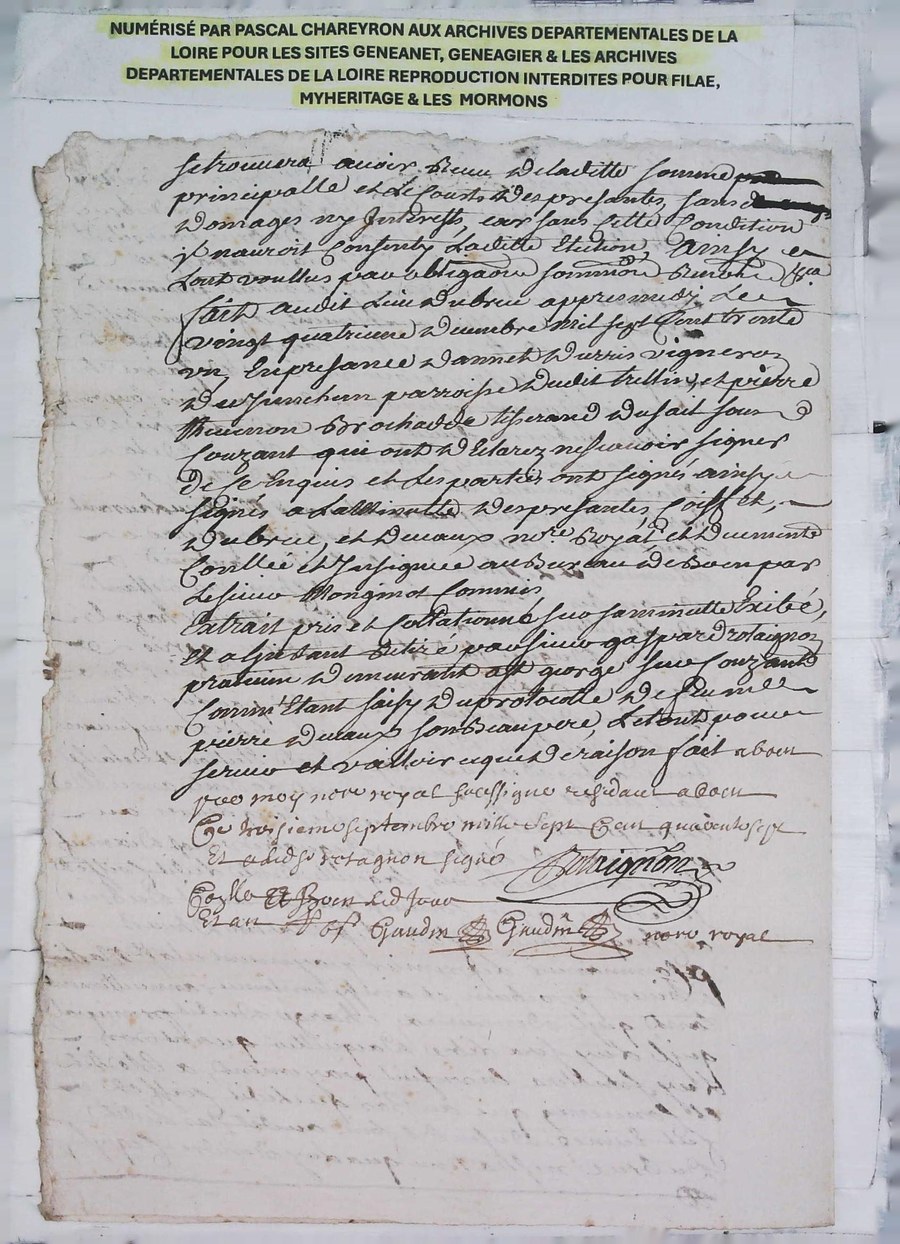 NUMÉRISÉ PAR PASCAL CHAREYRON AUX ARCHIVES DEPARTEMENTALES DE LA
LOIRE POUR LES SITES GENEANET, GENEAGIER & LES ARCHIVES
DEPARTEMENTALES DE LA LOIRE REPRODUCTION INTERDITES POUR FILAE,
MYHERITAGE & LES MORMONS
se trouvera avoir Receu de laditte somme
principalle et le Couts des presantes, sans
domages ny Interests, car sans Cette Condition
il nauroit Consenty laditte Ainsy
lont voullus par obligaon
fait audit lieu dubrui appres midy le
vingt quatrieme decembre mil sept Cent trente
En presance dannet vigneron
parroisse dudit trellin, et pierre
tisserand du fait sous
Couzant qui ont declarez ne scavoir signer
de ce Enquis et les parties ont signés ainsy
signés a la Minutte des presantes, Coiffet,
dubrui, et devaux nore Royal et duement
Conllée et Insignuée au Bureau de Boen par
le sieur Mongirot Commis
Extrait pris et Collationné sur sa minutte Exibée,
et a linstant Retiré par sieur gaspard rotaignon
praticien demeurant a st george sur Couzant
Comm' Etant saisy du protocolle de feu me
pierre devaux son Beaupere, le tout pour
servir et valloir ce que de raison fait a boen
par moy nore royal soussigne residant a boen
Ce troisieme septembre mille sept Cent quarente sept
Et a ledsr rotagnon signé Rotaignon
a Boen led jour
Et an Gaudin Gaudin nore royal